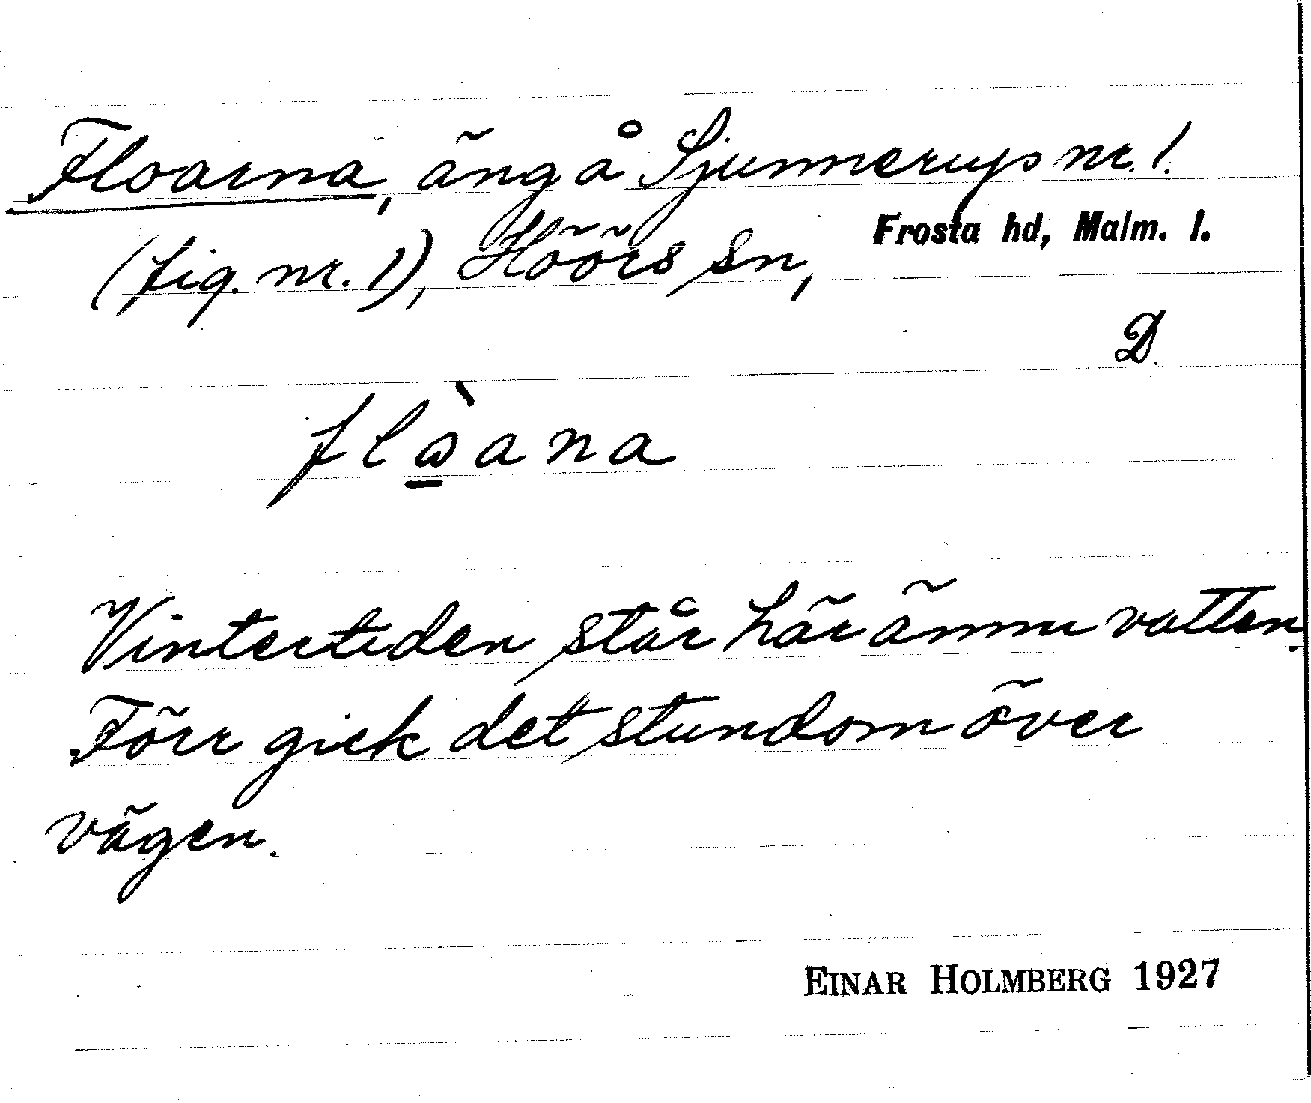 Floarna, äng å Sjunnerup nr. 1.
(fig. nr. 1), Höörs sn, Frosta hd, Malm. l.
D.
flɷ̱̀ana
Vintertiden står här ännu vatten.
Förr gick det stundom över
vägen.
EINAR HOLMBERG 1927